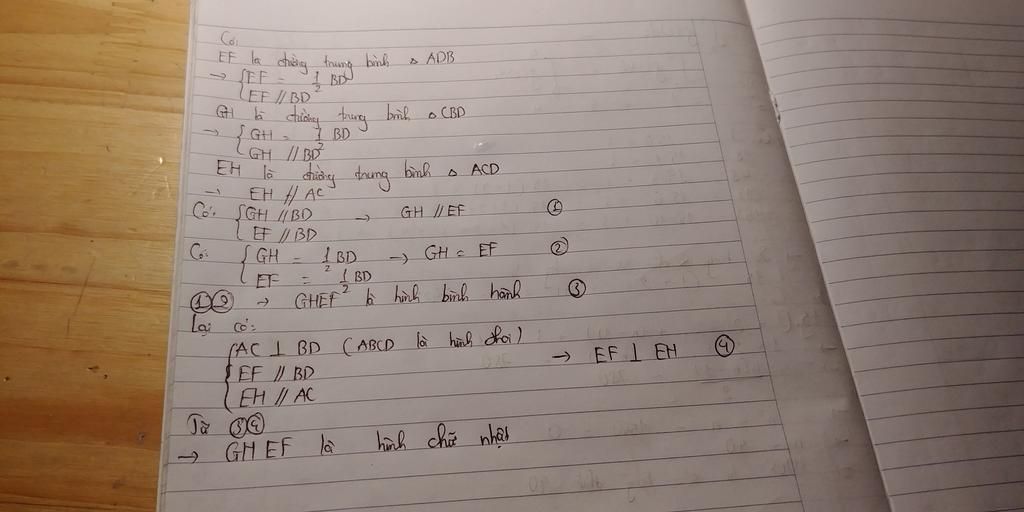 Có:
EF là đường trung bình △ ADB
→ { EF = 1/2 BD
EF // BD
GH là đường trung bình △ CBD
→ { GH = 1/2 BD
GH // BD
EH là đường trung bình △ ACD
→ EH // AC
Có: { GH // BD → GH // EF ①
EF // BD
Có: { GH = 1/2 BD → GH = EF ②
EF = 1/2 BD
①② → GHEF là hình bình hành ③
Lại có:
{ AC ⊥ BD (ABCD là hình thoi)
EF // BD → EF ⊥ EH ④
EH // AC
Từ ③④
→ GHEF là hình chữ nhật